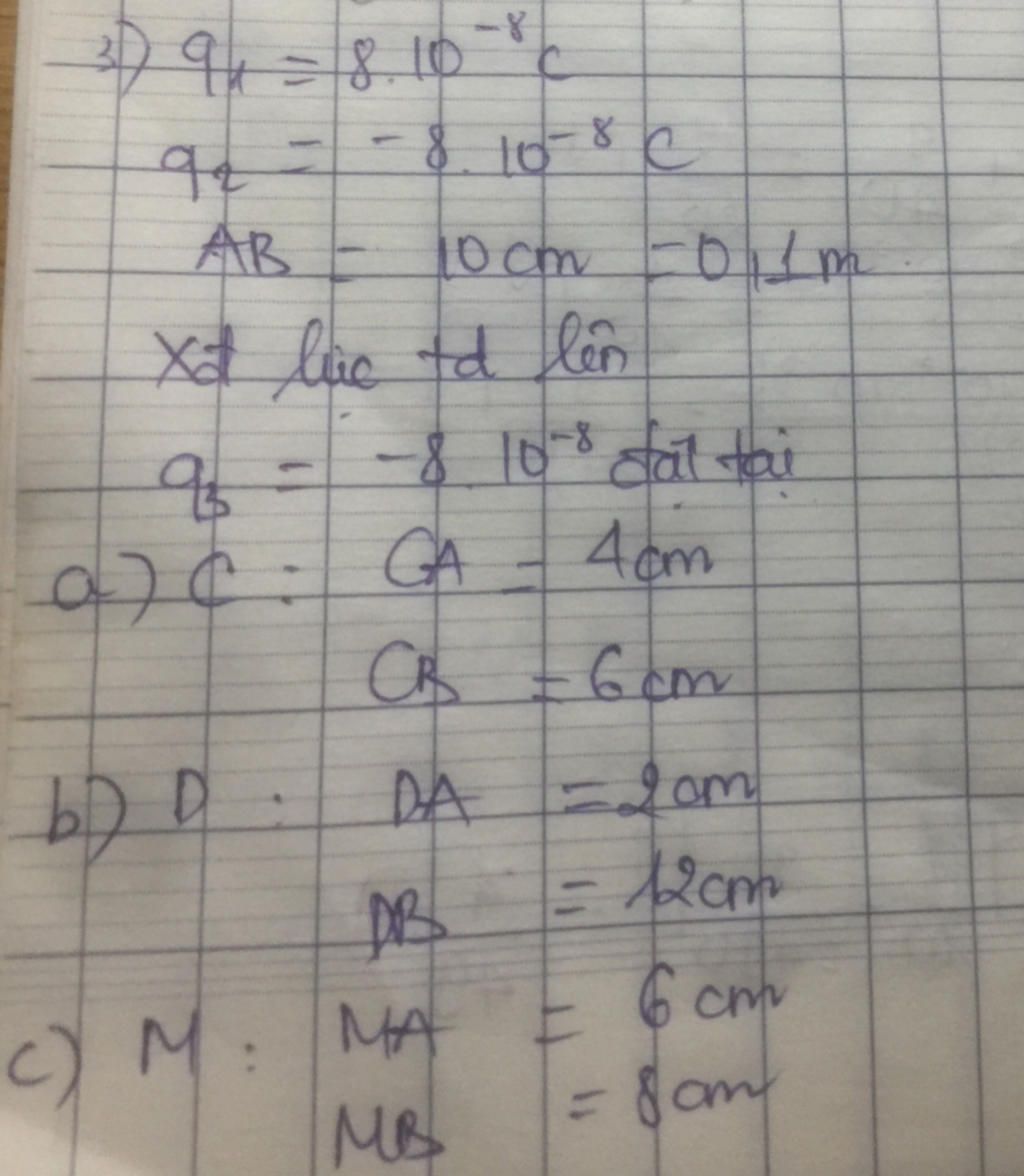 3) q₁ = 8.10⁻⁸ C
q₂ = -8.10⁻⁸ C
AB = 10 cm = 0,1 m
Xđ lực td lên
q₃ = -8.10⁻⁸ đặt tại
a) C : CA = 4cm
CB = 6 cm
b) D : DA = 2 cm
DB = 12cm
c) M : MA = 6 cm
MB = 8 cm